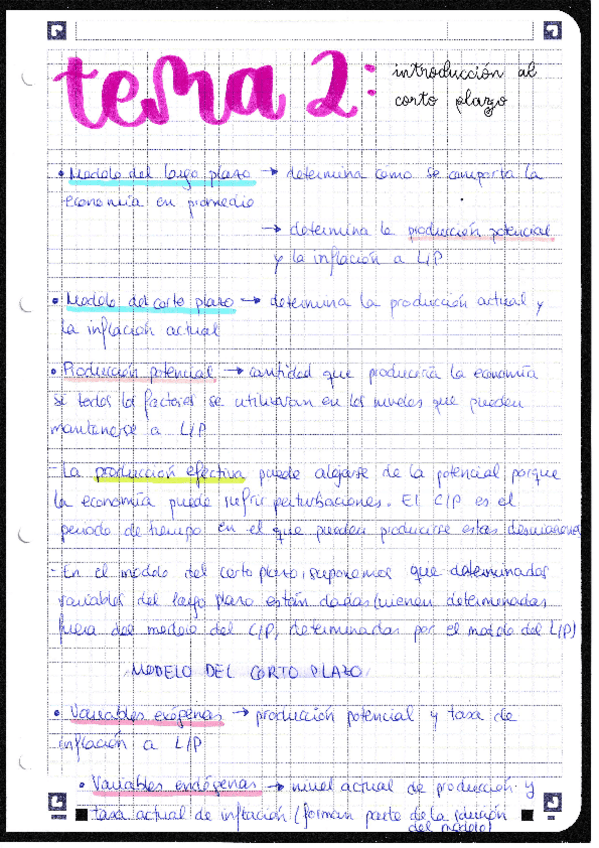 tema 2: introducción al
corto plazo
• Modelo del largo plazo → determina como se comporta la
economía en promedio
→ determina la producción potencial
y la inflación a L/P
• Modelo del corto plazo → determina la producción actual y
la inflación actual
• Producción potencial → cantidad que produciría la economía
si todos los factores se utilizaran en los niveles que pueden
mantenerse a L/P
La producción efectiva puede alejarse de la potencial porque
la economía puede sufrir perturbaciones. El C/P es el
periodo de tiempo en el que pueden producirse estas desviaciones
- En el modelo del corto plazo, suponemos que determinadas
variables del largo plazo están dadas (vienen determinadas
fuera del modelo del C/P, determinadas por el modelo del L/P)
MODELO DEL CORTO PLAZO
• Variables exógenas → producción potencial y tasa de
inflación a L/P
• Variables endógenas → nivel actual de producción y
tasa actual de inflación (forman parte de la solución
del modelo)